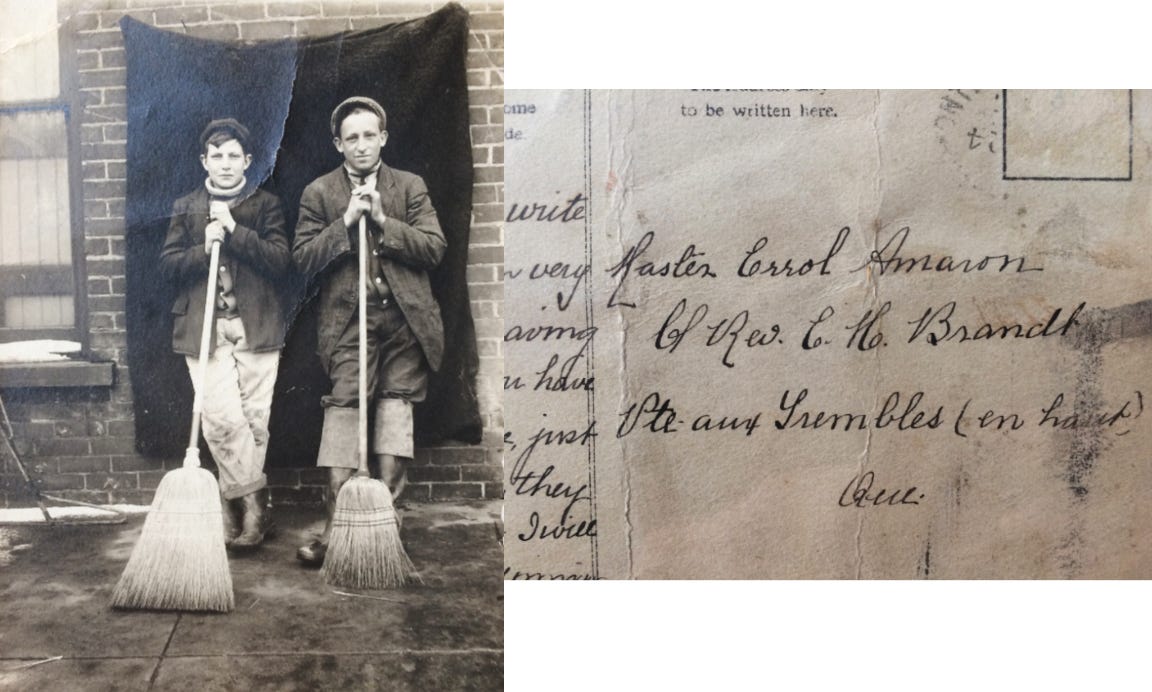 ome
de.
to be written here.
write
very
aving
have
just
they
I will
Master Errol Amaron
c/o Rev. E. H. Brandt
Pte-aux Trembles (en haut)
Que.